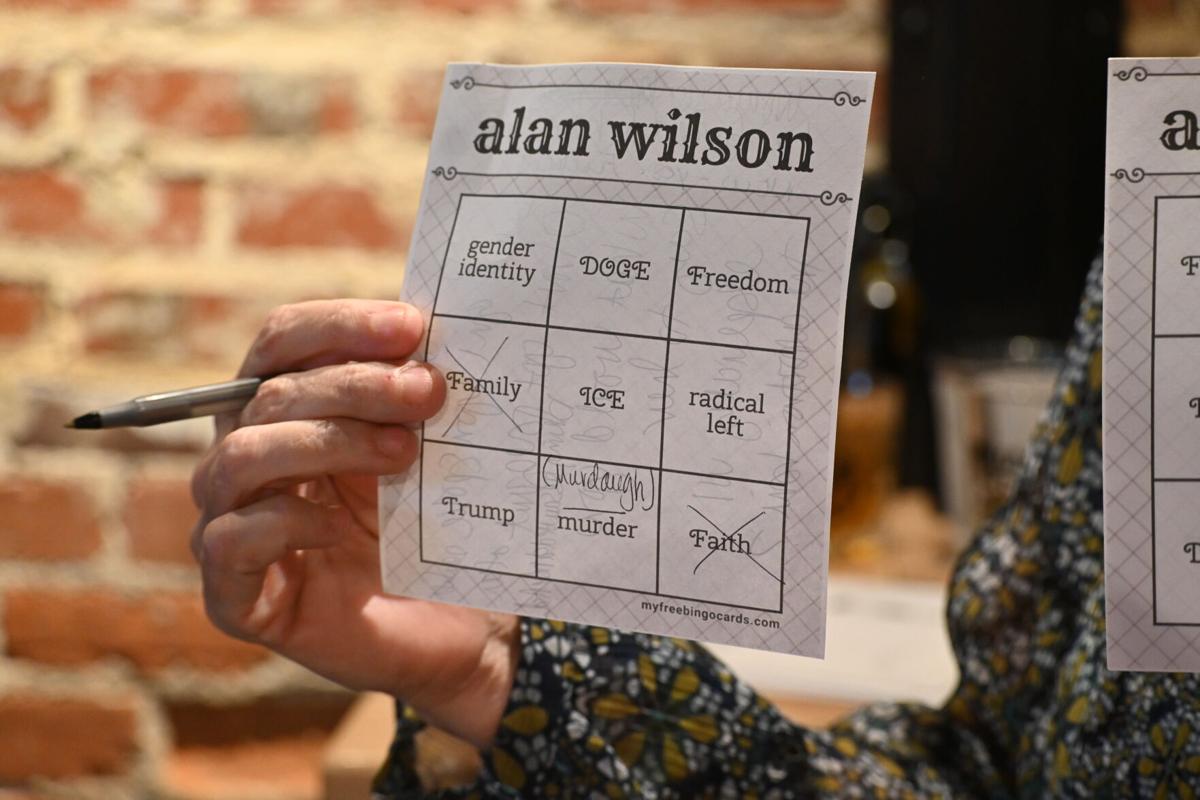 alan wilson
gender
identity
DOGE
Freedom
Family
ICE
radical
left
Trump
(Murdaugh)
murder
Faith
myfreebingocards.com
a
F
D